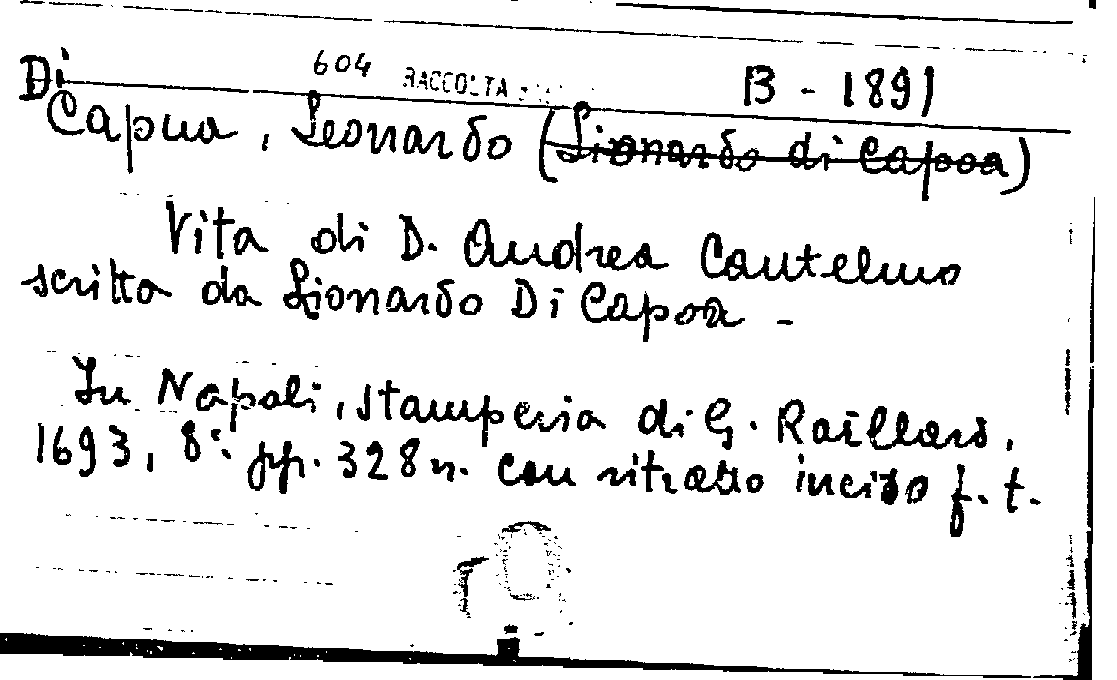 604 RACCOLTA B - 1891
Di
Capua, Leonardo (Lionardo di Capoa)
Vita di D. Andrea Cantelmo
scritta da Lionardo Di Capoa -
In Napoli, stamperia di G. Raillard,
1693, 8° pp. 328 n. con ritratto inciso f. t.